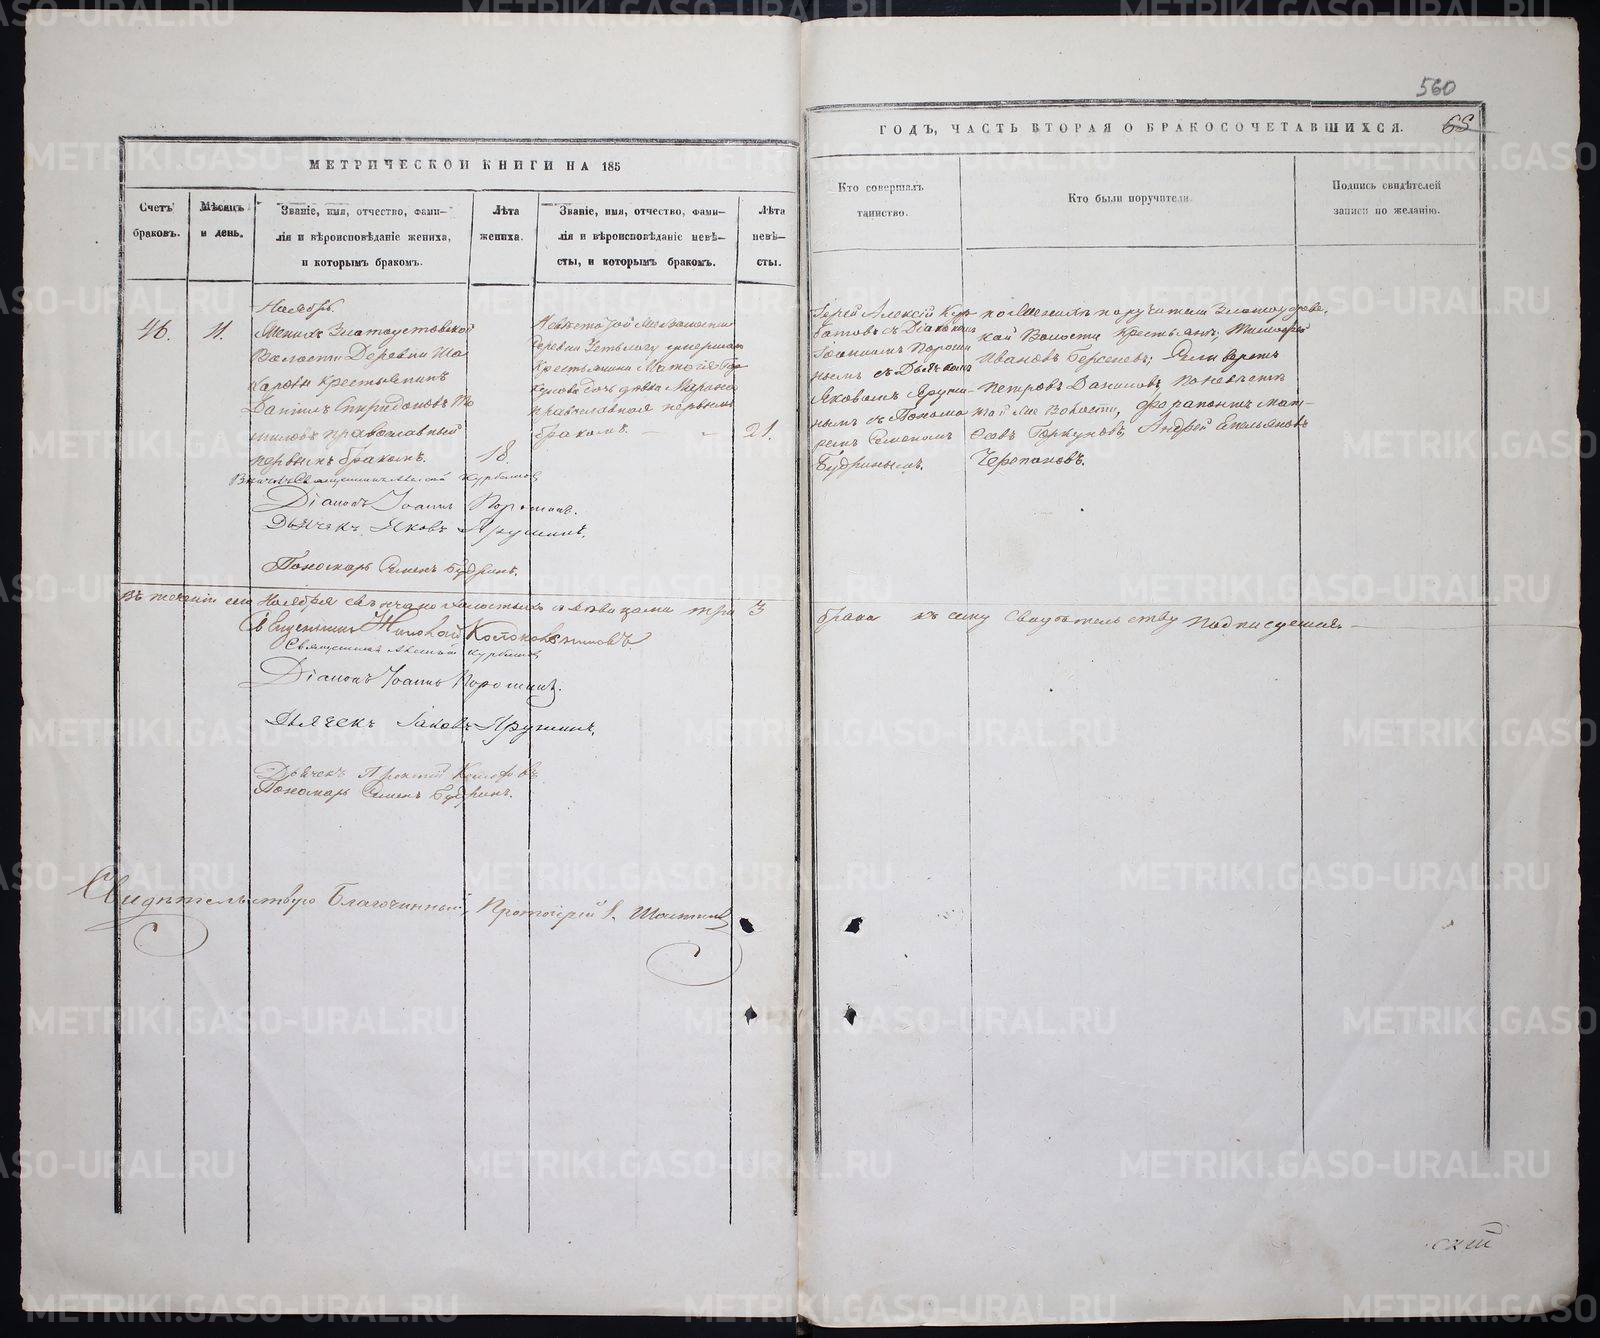 560
МЕТРИЧЕСКОЙ КНИГИ НА 185
ГОДЪ, ЧАСТЬ ВТОРАЯ О БРАКОСОЧЕТАВШИХСЯ.
68
Счетъ браковъ.
Мѣсяцъ и день.
Званіе, имя, отчество, фами-
лія и вѣроисповѣданіе жениха,
и которымъ бракомъ.
Лѣта жениха.
Званіе, имя, отчество, фами-
лія и вѣроисповѣданіе невѣ-
сты, и которымъ бракомъ.
Лѣта невѣ-
сты.
Кто совершалъ
таинство.
Кто были поручители.
Подпись свидѣтелей
записи по желанію.
Ноябрь.
46.
11.
Женихъ Златоустовской
Волости Деревни
крестьянинъ
Даніилъ Спиридоновъ
православный
первымъ бракомъ.
18.
Невѣста той же Волости
деревни умершаго
крестьянина
дочь дѣвка Марина
православная первымъ
бракомъ.
21.
Іерей Алексій Кур-
батовъ съ Діакономъ
Іоанномъ Пороши
нымъ съ Дьячкомъ
Яковомъ Яруши-
нымъ и Понома
ремъ Семеномъ
Будринымъ.
по Женихѣ поручители Златоустов
кой Волости Крестьяне, Тимофей
Ивановъ Берсеневъ;
Петровъ Даниловъ по невѣстѣ
той же Волости, Ферапонтъ Мат-
Горкуновъ, Андрей Емельяновъ
Черепановъ.
Священникъ Алексій Курбатовъ
Діаконъ Іоаннъ Порошинъ.
Дьячекъ Яковъ Ярушинъ.
Пономарь Семенъ Будринъ.
Въ теченіи сего Ноября свѣнчано холостыхъ съ дѣвицами три 3 брака къ сему Свидѣтельству Подписуемся
Священникъ Николай
Священникъ Алексій Курбатовъ
Діаконъ Іоаннъ Порошинъ.
Дьячекъ Іаковъ Ярушинъ.
Дьячекъ
Пономарь Семенъ Будринъ.
Свидѣтельствую Благочинный, Протоіерей
METRIKI.GASO-URAL.RU